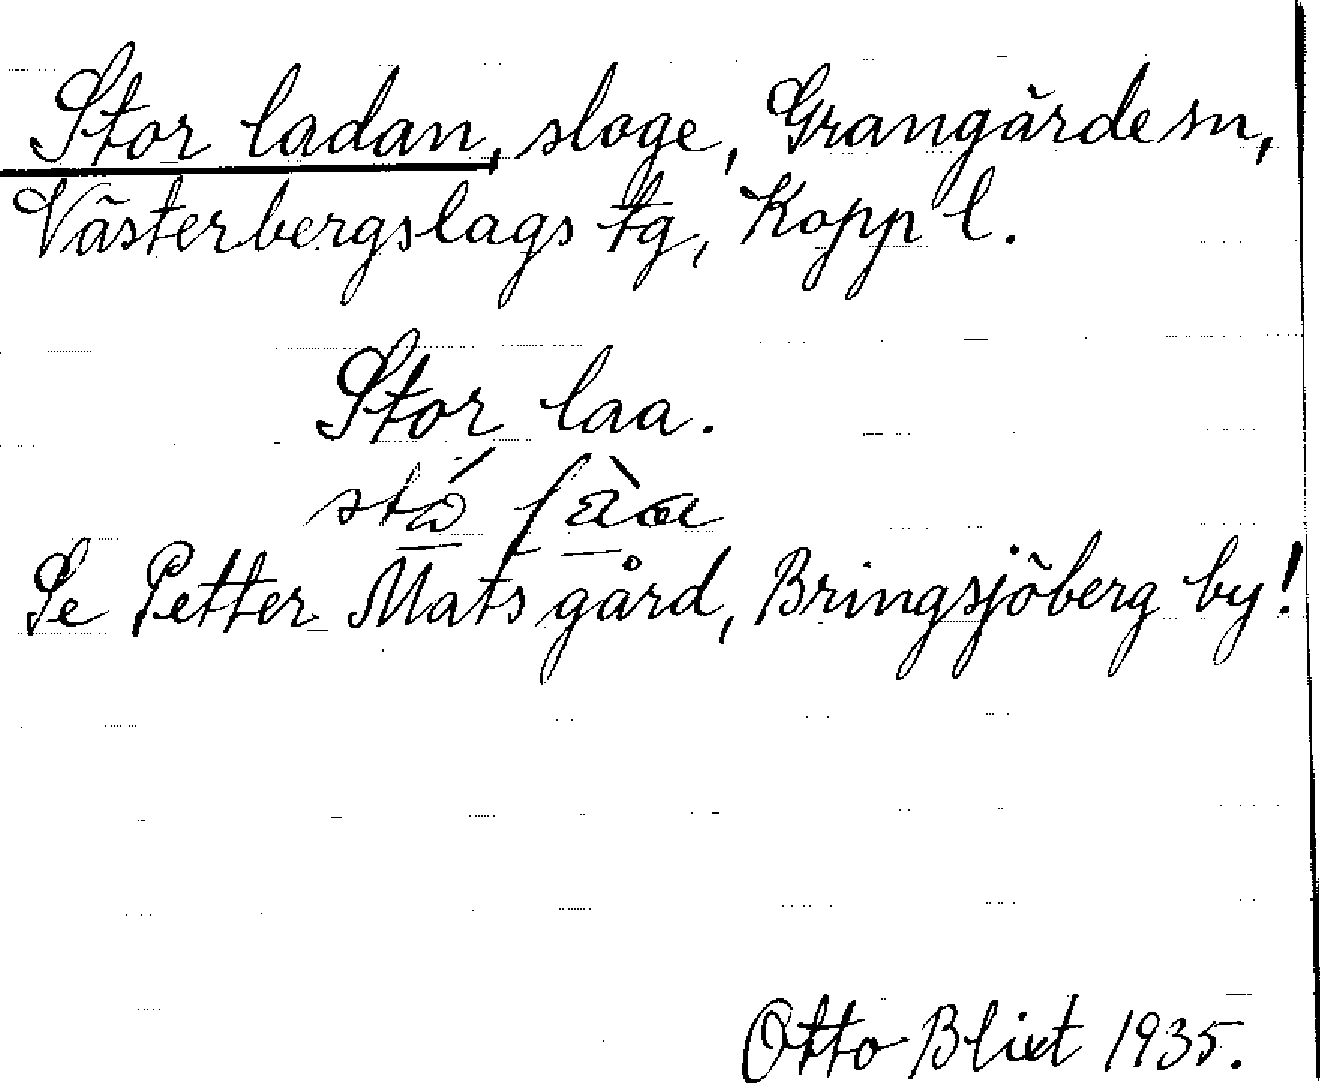 Stor ladan, sloge, Grangärde sn,
Västerbergslags tg, Kopp l.
Stor laa.
Se Petter Mats gård, Bringsjöberg by!
Otto Blixt 1935.